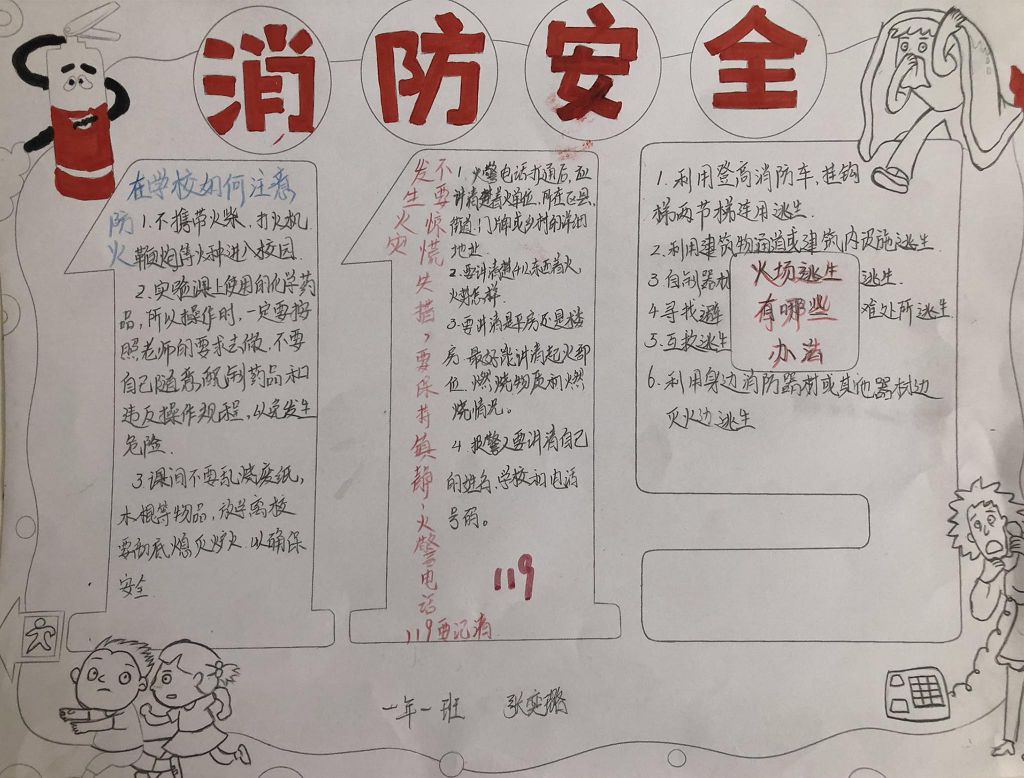 消防安全
在学校如何注意
防火
1.不携带火柴、打火机
鞭炮等火种进入校园.
2.实验课上使用的化学药
品,所以操作时,一定要按
照老师的要求去做,不要
自己随意配制药品和
违反操作规程,以免发生
危险.
3.课间不要乱烧废纸,
木棍等物品,放学离校
要彻底熄灭炉火.以确保
安全.
发生火灾
不要惊慌失措,要保持镇静,火警电话
119要记清
1.火警电话打通后,应
讲清楚着火单位,所在区县、
街道、门牌或乡村的详细
地址.
2.要讲清楚什么东西着火
火势怎样.
3.要讲清是平房还是楼
房,最好能讲清起火部
位,燃烧物质和燃
烧情况。
4.报警人要讲清自己
的姓名、学校和电话
号码。
119
火场逃生
有哪些
办法
1.利用登高消防车,挂钩
梯两节梯连用逃生.
2.利用建筑物通道或建筑内设施逃生.
3.自制器材 逃生.
4.寻找避 难处所逃生.
5.互救逃生
6.利用身边消防器材或其他器材边
灭火边逃生
一年一班 张奕璐